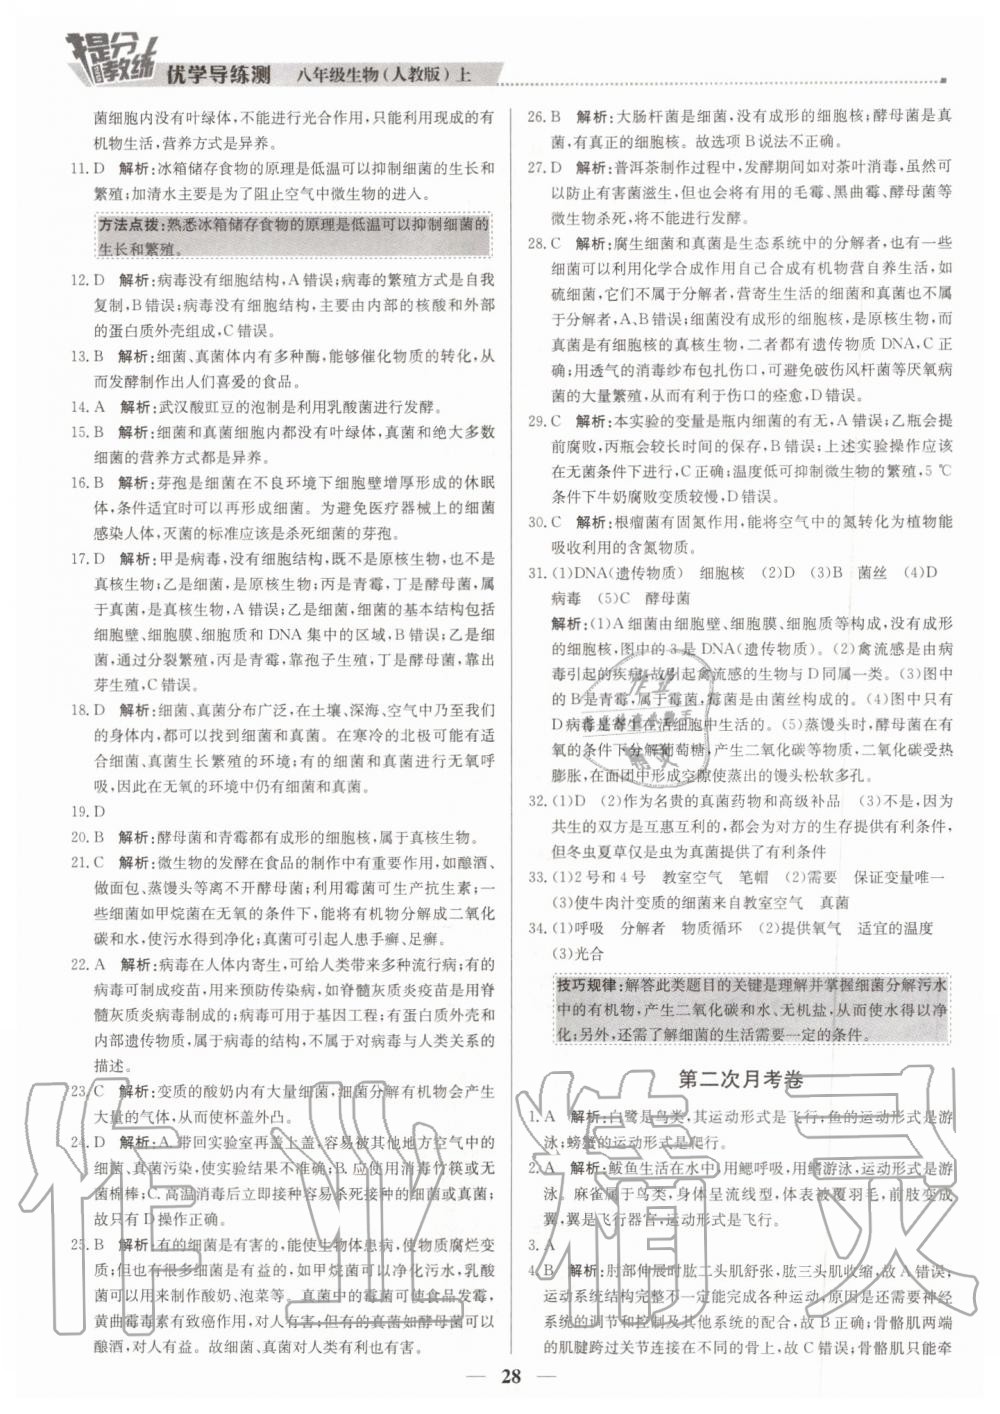 提分教练
优学导练测 八年级生物(人教版)上
菌细胞内没有叶绿体,不能进行光合作用,只能利用现成的有
机物生活,营养方式是异养。
11. D 解析:冰箱储存食物的原理是低温可以抑制细菌的生长和
繁殖;加清水主要是为了阻止空气中微生物的进入。
方法点拨:熟悉冰箱储存食物的原理是低温可以抑制细菌的
生长和繁殖。
12. D 解析:病毒没有细胞结构,A错误;病毒的繁殖方式是自我
复制,B错误;病毒没有细胞结构,主要由内部的核酸和外部
的蛋白质外壳组成,C错误。
13. B 解析:细菌、真菌体内有多种酶,能够催化物质的转化,从
而发酵制作出人们喜爱的食品。
14. A 解析:武汉酸豇豆的泡制是利用乳酸菌进行发酵。
15. B 解析:细菌和真菌细胞内都没有叶绿体,真菌和绝大多数
细菌的营养方式都是异养。
16. B 解析:芽孢是细菌在不良环境下细胞壁增厚形成的休眠
体,条件适宜时可以再形成细菌。为避免医疗器械上的细菌
感染人体,灭菌的标准应该是杀死细菌的芽孢。
17. D 解析:甲是病毒,没有细胞结构,既不是原核生物,也不是
真核生物;乙是细菌,是原核生物;丙是青霉,丁是酵母菌,属
于真菌,是真核生物,A错误;乙是细菌,细菌的基本结构包括
细胞壁、细胞膜、细胞质和 DNA 集中的区域,B错误;乙是细
菌,通过分裂繁殖,丙是青霉,靠孢子生殖,丁是酵母菌,靠出
芽生殖,C错误。
18. D 解析:细菌、真菌分布广泛,在土壤、深海、空气中乃至我们
的身体内,都可以找到细菌和真菌。在寒冷的北极可能有细
菌、真菌生长繁殖的环境;有的细菌和真菌进行无氧呼
吸,因此在无氧的环境中仍有细菌和真菌。
19. D
20. B 解析:酵母菌和青霉都有成形的细胞核,属于真核生物。
21. C 解析:微生物的发酵在食品的制作中有重要作用,如酿酒、
做面包、蒸馒头等离不开酵母菌;利用霉菌可生产抗生素;一
些细菌如甲烷菌在无氧的条件下,能将有机物分解成二氧化
碳和水,使污水得到净化;真菌可引起人患手癣、足癣。
22. A 解析:病毒在人体内寄生,可给人类带来多种流行病;有的
病毒可制成疫苗,用来预防传染病,如脊髓灰质炎疫苗是用脊
髓灰质炎病毒制成的;病毒可用于基因工程;有蛋白质外壳和
内部遗传物质,属于病毒的结构,不属于病毒与人类关系的
描述。
23. C 解析:变质的酸奶内有大量细菌,细菌分解有机物会产生
大量的气体,从而使杯盖外凸。
24. D 解析:A.带回实验室再盖上盖,容易被其他地方空气中的
细菌、真菌污染,使实验结果不准确;B.应使用消毒竹筷或无
菌棉棒;C.高温消毒后立即接种容易杀死接种的细菌或真菌;
故只有D操作正确。
25. B 解析:有的细菌是有害的,能使生物体患病,使物质腐烂变
质;但也有很多细菌是有益的,如甲烷菌可以净化污水,乳酸
菌可以制作酸奶、泡菜等。真菌中的霉菌可使食品发霉,
黄曲霉毒素有致癌作用,对人有害;但有的真菌如酵母菌可以
酿酒,对人有益。故细菌、真菌对人类有利也有害。
26. B 解析:大肠杆菌是细菌,没有成形的细胞核;酵母菌是真
菌,有真正的细胞核。故选项B说法不正确。
27. D 解析:普洱茶制作过程中,发酵期间如对茶叶消毒,虽然可
以防止有害菌滋生,但也会将有用的毛霉、黑曲霉、酵母菌等
微生物杀死,将不能进行发酵。
28. C 解析:腐生细菌和真菌是生态系统中的分解者,也有一些
细菌可以利用化学合成作用自己合成有机物营自养生活,如
硫细菌,它们不属于分解者,营寄生生活的细菌和真菌也不属
于分解者,A、B错误;细菌没有成形的细胞核,是原核生物,而
真菌是有细胞核的真核生物,二者都有遗传物质 DNA,C正
确;用透气的消毒纱布包扎伤口,可避免破伤风杆菌等厌氧病
菌的大量繁殖,从而有利于伤口的痊愈,D错误。
29. C 解析:本实验的变量是瓶内细菌的有无,A错误;乙瓶会提
前腐败,丙瓶会较长时间的保存,B错误;上述实验操作应该
在无菌条件下进行,C正确;温度低可抑制微生物的繁殖,5 ℃
条件下牛奶腐败变质较慢,D错误。
30. C 解析:根瘤菌有固氮作用,能将空气中的氮转化为植物能
吸收利用的含氮物质。
31. (1)DNA(遗传物质) 细胞核 (2)D (3)B 菌丝 (4)D
病毒 (5)C 酵母菌
解析:(1)A细菌由细胞壁、细胞膜、细胞质等构成,没有成形
的细胞核,图中的3是DNA(遗传物质)。(2)禽流感是由病
毒引起的疾病,故引起禽流感的生物与D同属一类。(3)图中
的B是青霉,属于霉菌,霉菌是由菌丝构成的。(4)图中只有
D病毒是寄生在活细胞中生活的。(5)蒸馒头时,酵母菌在有
氧的条件下分解葡萄糖,产生二氧化碳等物质,二氧化碳受热
膨胀,在面团中形成空隙使蒸出的馒头松软多孔。
32. (1)D (2)作为名贵的真菌药物和高级补品 (3)不是,因为
共生的双方是互惠互利的,都会为对方的生存提供有利条件,
但冬虫夏草仅是虫为真菌提供了有利条件
33. (1)2号和4号 教室空气 笔帽 (2)需要 保证变量唯一
(3)使牛肉汁变质的细菌来自教室空气 真菌
34. (1)呼吸 分解者 物质循环 (2)提供氧气 适宜的温度
(3)光合
技巧规律:解答此类题目的关键是理解并掌握细菌分解污水
中的有机物,产生二氧化碳和水、无机盐,从而使水得以净
化;另外,还需了解细菌的生活需要一定的条件。
第二次月考卷
1. A 解析:白鹭是鸟类,其运动形式是飞行;鱼的运动形式是游
泳;螃蟹的运动形式是爬行。
2. A 解析:鲅鱼生活在水中,用鳃呼吸,用鳍游泳,运动形式是游
泳。麻雀属于鸟类,身体呈流线型,体表被覆羽毛,前肢变成
翼,翼是飞行器官,运动形式是飞行。
3. A
4. B 解析:肘部伸展时肱二头肌舒张,肱三头肌收缩,故A错误;
运动系统结构完整不一定能完成各种运动,原因是还需要神经
系统的调节和控制及其他系统的配合,故B正确;骨骼肌两端
的肌腱跨过关节连接在不同的骨上,故C错误;骨骼肌只能牵
28
作业精灵